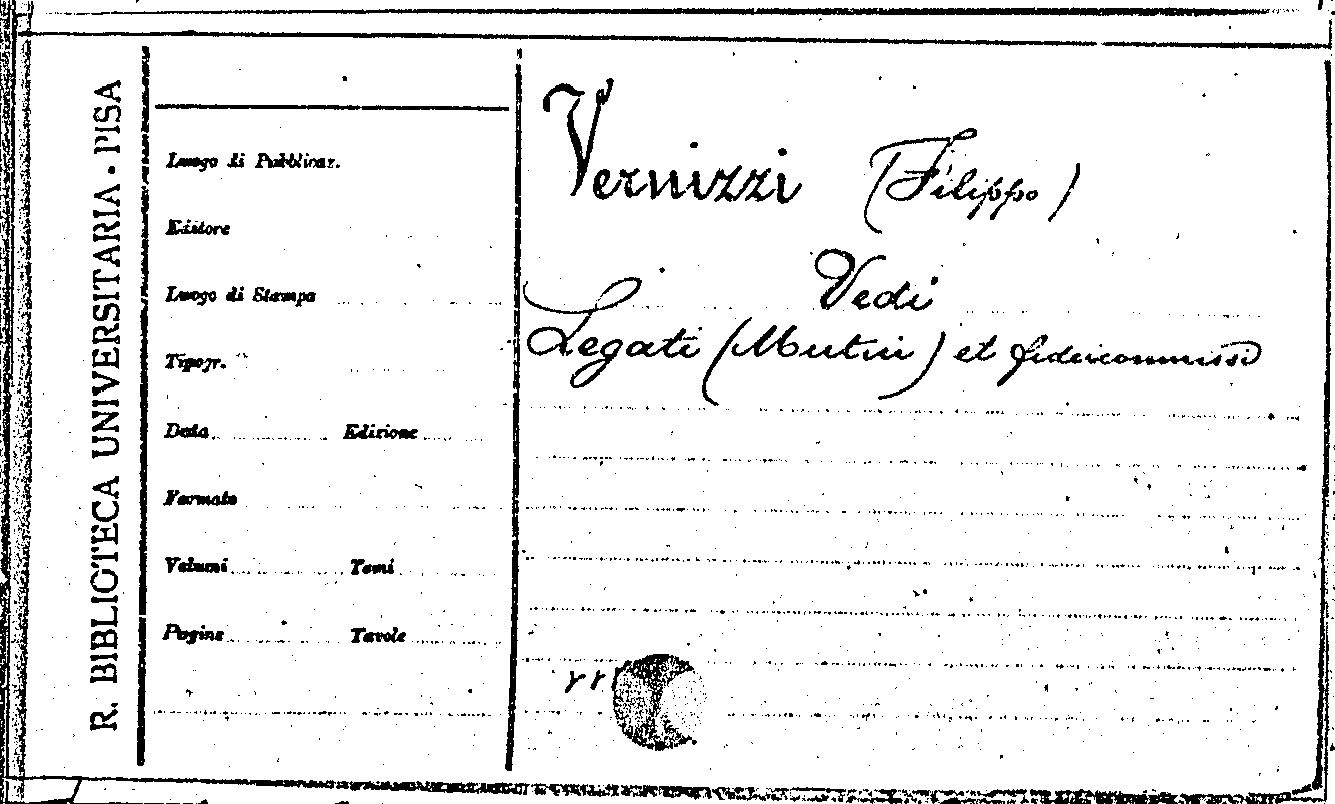 R. BIBLIOTECA UNIVERSITARIA - PISA
Luogo di Pubblicaz.
Editore
Luogo di Stampa
Tipogr.
Data Edizione
Formato
Volumi Tomi
Pagine Tavole
Vernizzi (Filippo)
Vedi
Legati (Mutui) et fideicommissi